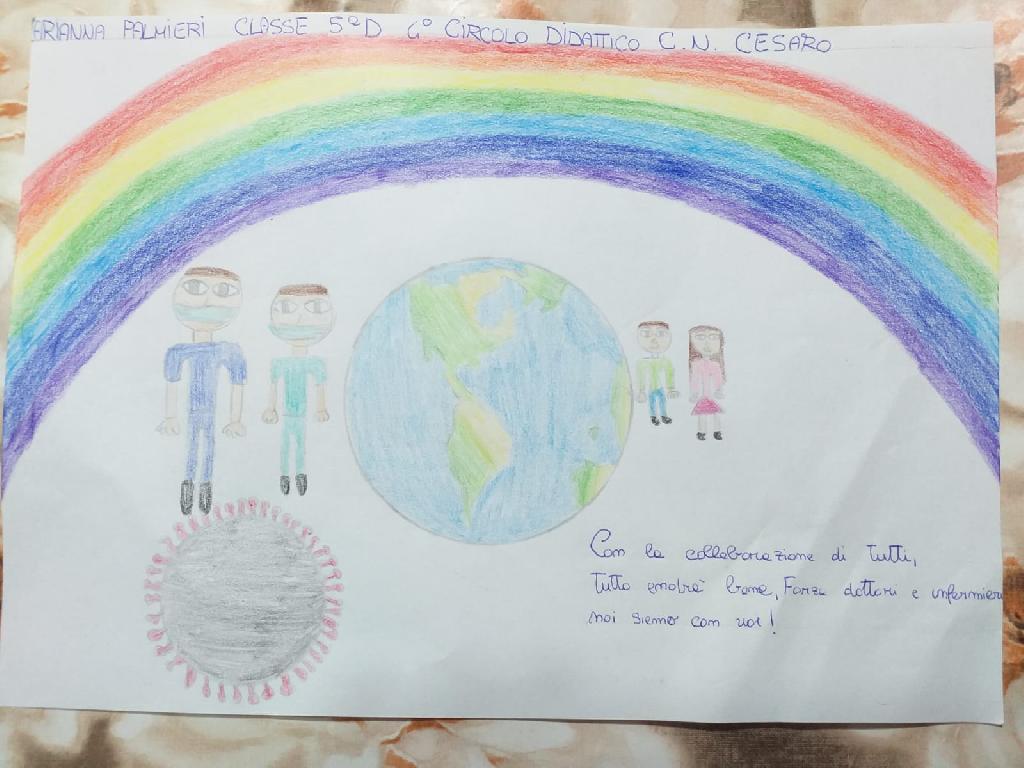 ARIANNA PALMIERI CLASSE 5ºD 4º CIRCOLO DIDATTICO C.N. CESARO
Con la collaborazione di tutti,
tutto andrà bene, Forza dottori e infermieri
noi siamo con voi!